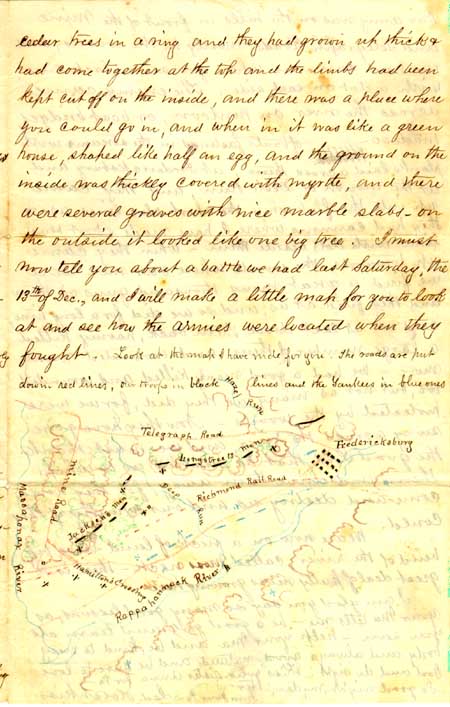 cedar trees in a ring and they had grown up thick &
had come together at the top and the limbs had been
kept cut off on the inside, and there was a place where
you could go in, and when in it was like a green
house, shaped like half an egg, and the ground on the
inside was thickly covered with myrtle, and there
were several graves with nice marble slabs - on
the outside it looked like one big tree. I must
now tell you about a battle we had last Saturday, the
13th of Dec., and I will make a little map for you to look
at and see how the armies were located when they
fought. Look at the map I have made for you. The roads are put
down in red lines, our troops in black lines and the Yankees in blue ones
Hazel Run
Telegraph Road
Longstreet's men
Fredericksburg
Mine Road
Massaponax River
Jackson's men
Deep Run
Richmond Rail Road
Hamilton's Crossing
Rappahannock River